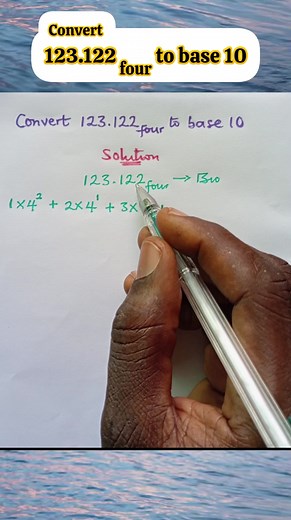 Convert
123.122four to base 10
Convert 123.122four to base 10
Solution
123.122four → B10
1×4² + 2×4¹ + 3×